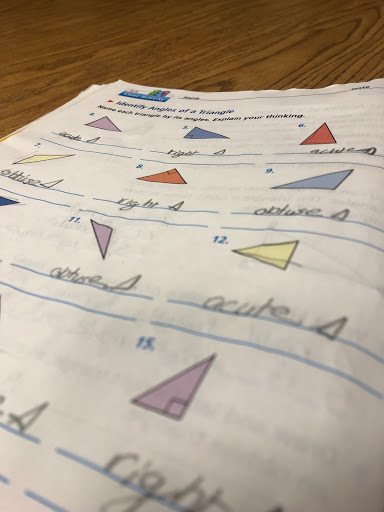 Name
Date
▸ Identify Angles of a Triangle
Name each triangle by its angles. Explain your thinking.
4. 5. 6.
acute △ right △ acute △
7. 8. 9.
obtuse △ right △ obtuse △
11. 12.
obtuse △ acute △
15.
right